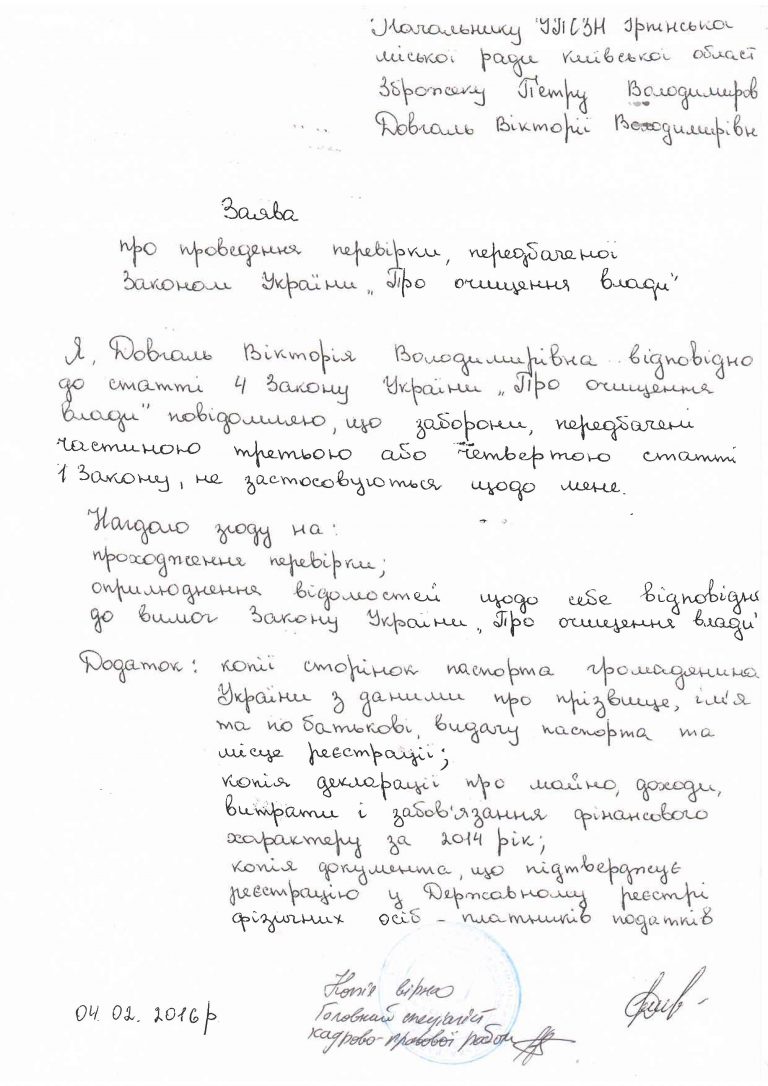 Начальнику УПСЗН Ірпінської
міської ради Київської област
Зброжеку Петру Володимиров
Довгаль Вікторії Володимирівн
Заява
про проведення перевірки, передбаченої
Законом України „Про очищення влади"
Я, Довгаль Вікторія Володимирівна відповідно
до статті 4 Закону України „Про очищення
влади" повідомляю, що заборони, передбачені
частиною третьою або четвертою статті
1 Закону, не застосовуються щодо мене.
Надаю згоду на:
проходження перевірки;
оприлюднення відомостей щодо себе відповідн
до вимог Закону України „Про очищення влади"
Додаток: копії сторінок паспорта громадянина
України з даними про прізвище, ім'я
та по батькові, видачу паспорта та
місце реєстрації;
копія декларації про майно, доходи,
витрати і забов'язання фінансового
характеру за 2014 рік;
копія документа, що підтверджує
реєстрацію у Державному реєстрі
фізичних осіб - платників податків
Копія вірна
04.02.2016р Головний спеціаліст
кадрово-правової роботи